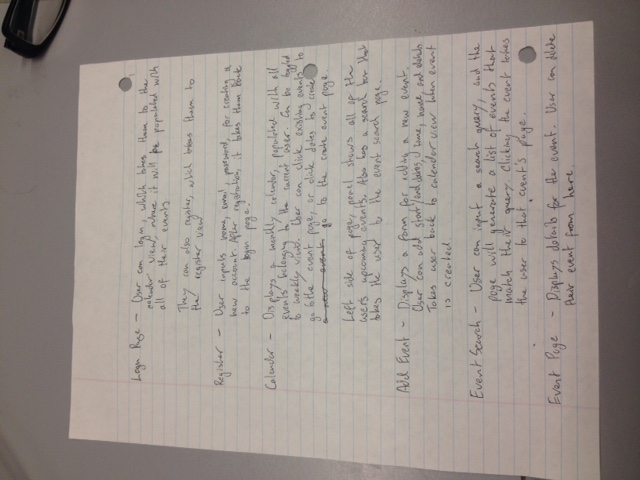 Login Page - User can login, which takes them to the
calendar view, where it will be populated with
all of their events
They can also register, which takes them to
the register view
Register - User inputs name, email, password, for creating a
new account. After registration, it takes them back
to the login page.
Calendar - Displays a monthly calendar, populated with all
events belonging to the current user. Can be toggled
to weekly view. User can click existing events to
go to the event page, or click dates to create
a new event go to the create event page.
Left side of page, panel shows all of the
users upcoming events. Also has a search bar that
takes the user to the event search page.
Add Event - Displays a form for adding a new event.
User can add start/end dates, time, name, and details
Takes user back to calendar view when event
is created.
Event Search - User can input a search query, and the
page will generate a list of events that
match their query. Clicking the event takes
the user to that event's page.
Event Page - Displays details for the event. User can delete
their event from here.